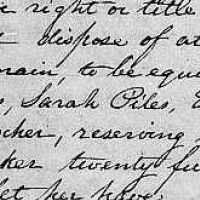 right or title
dispose of at
main, to be equ
Sarah Piles,
cher, reserving
ker twenty fu
let her have